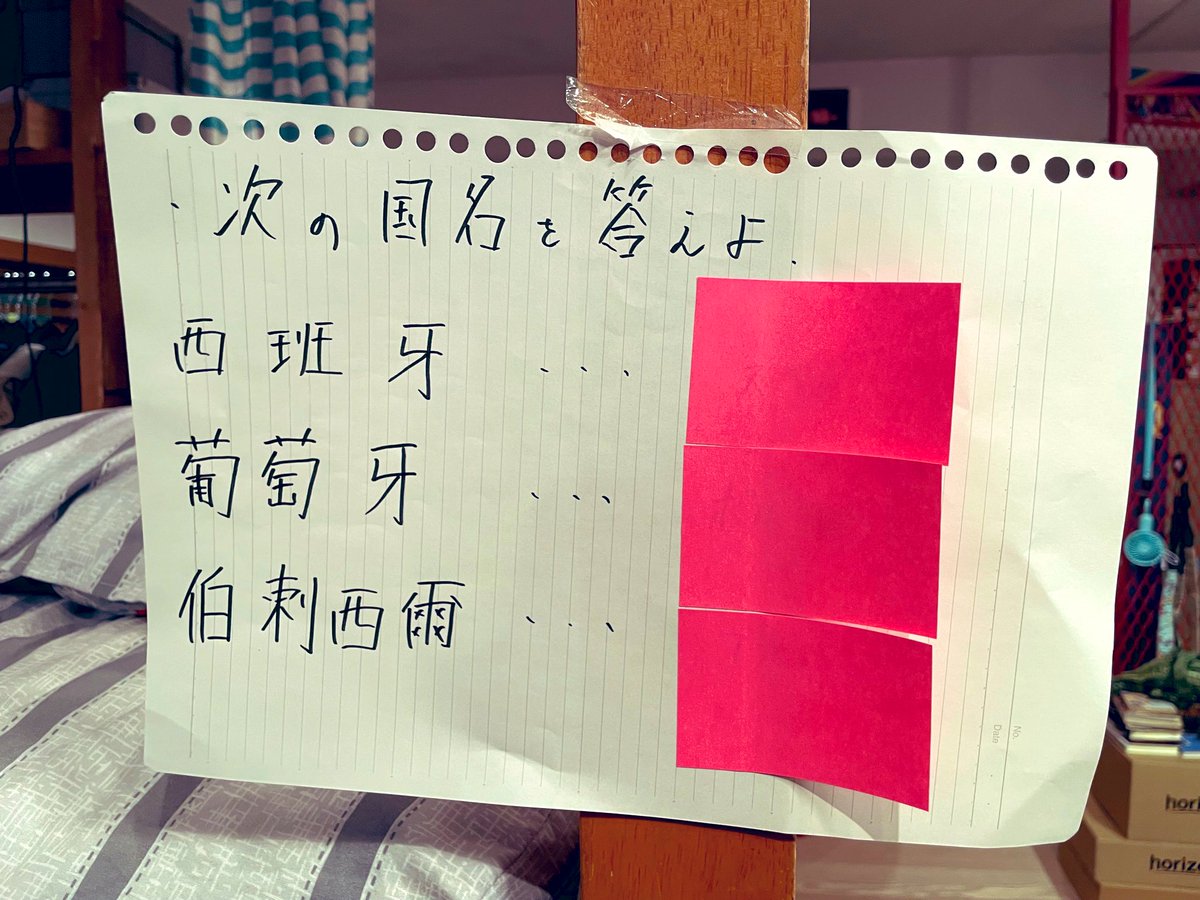 ・次の国名を答えよ.
西班牙 ...
葡萄牙 ...
伯剌西爾 ...
No.
Date
hori
horiz